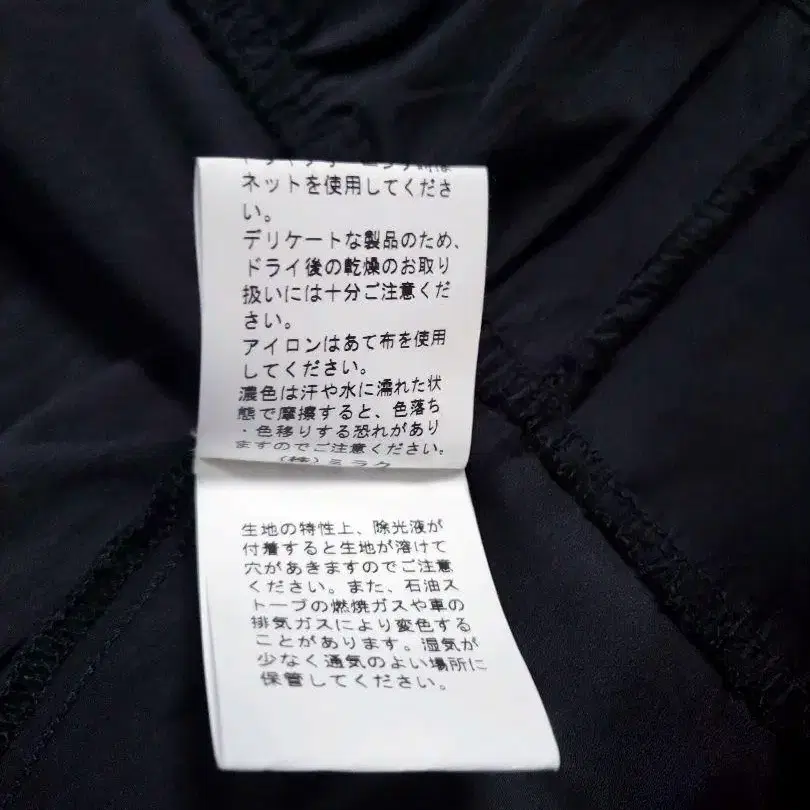 ネットを使用してくださ
い。
デリケートな製品のため、
ドライ後の乾燥のお取り
扱いには十分ご注意くだ
さい。
アイロンはあて布を使用
してください。
濃色は汗や水に濡れた状
態で摩擦すると、色落ち
・色移りする恐れがあり
ますのでご注意ください。
(株)ミラク
生地の特性上、除光液が
付着すると生地が溶けて
穴があきますのでご注意
ください。また、石油ス
トーブの燃焼ガスや車の
排気ガスにより変色する
ことがあります。湿気が
少なく通気のよい場所に
保管してください。